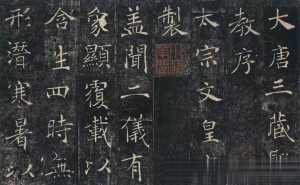 大唐三藏
教序
太宗文皇
製
盖聞二儀有
象顯覆載以
含生四時無
形潛寒暑以